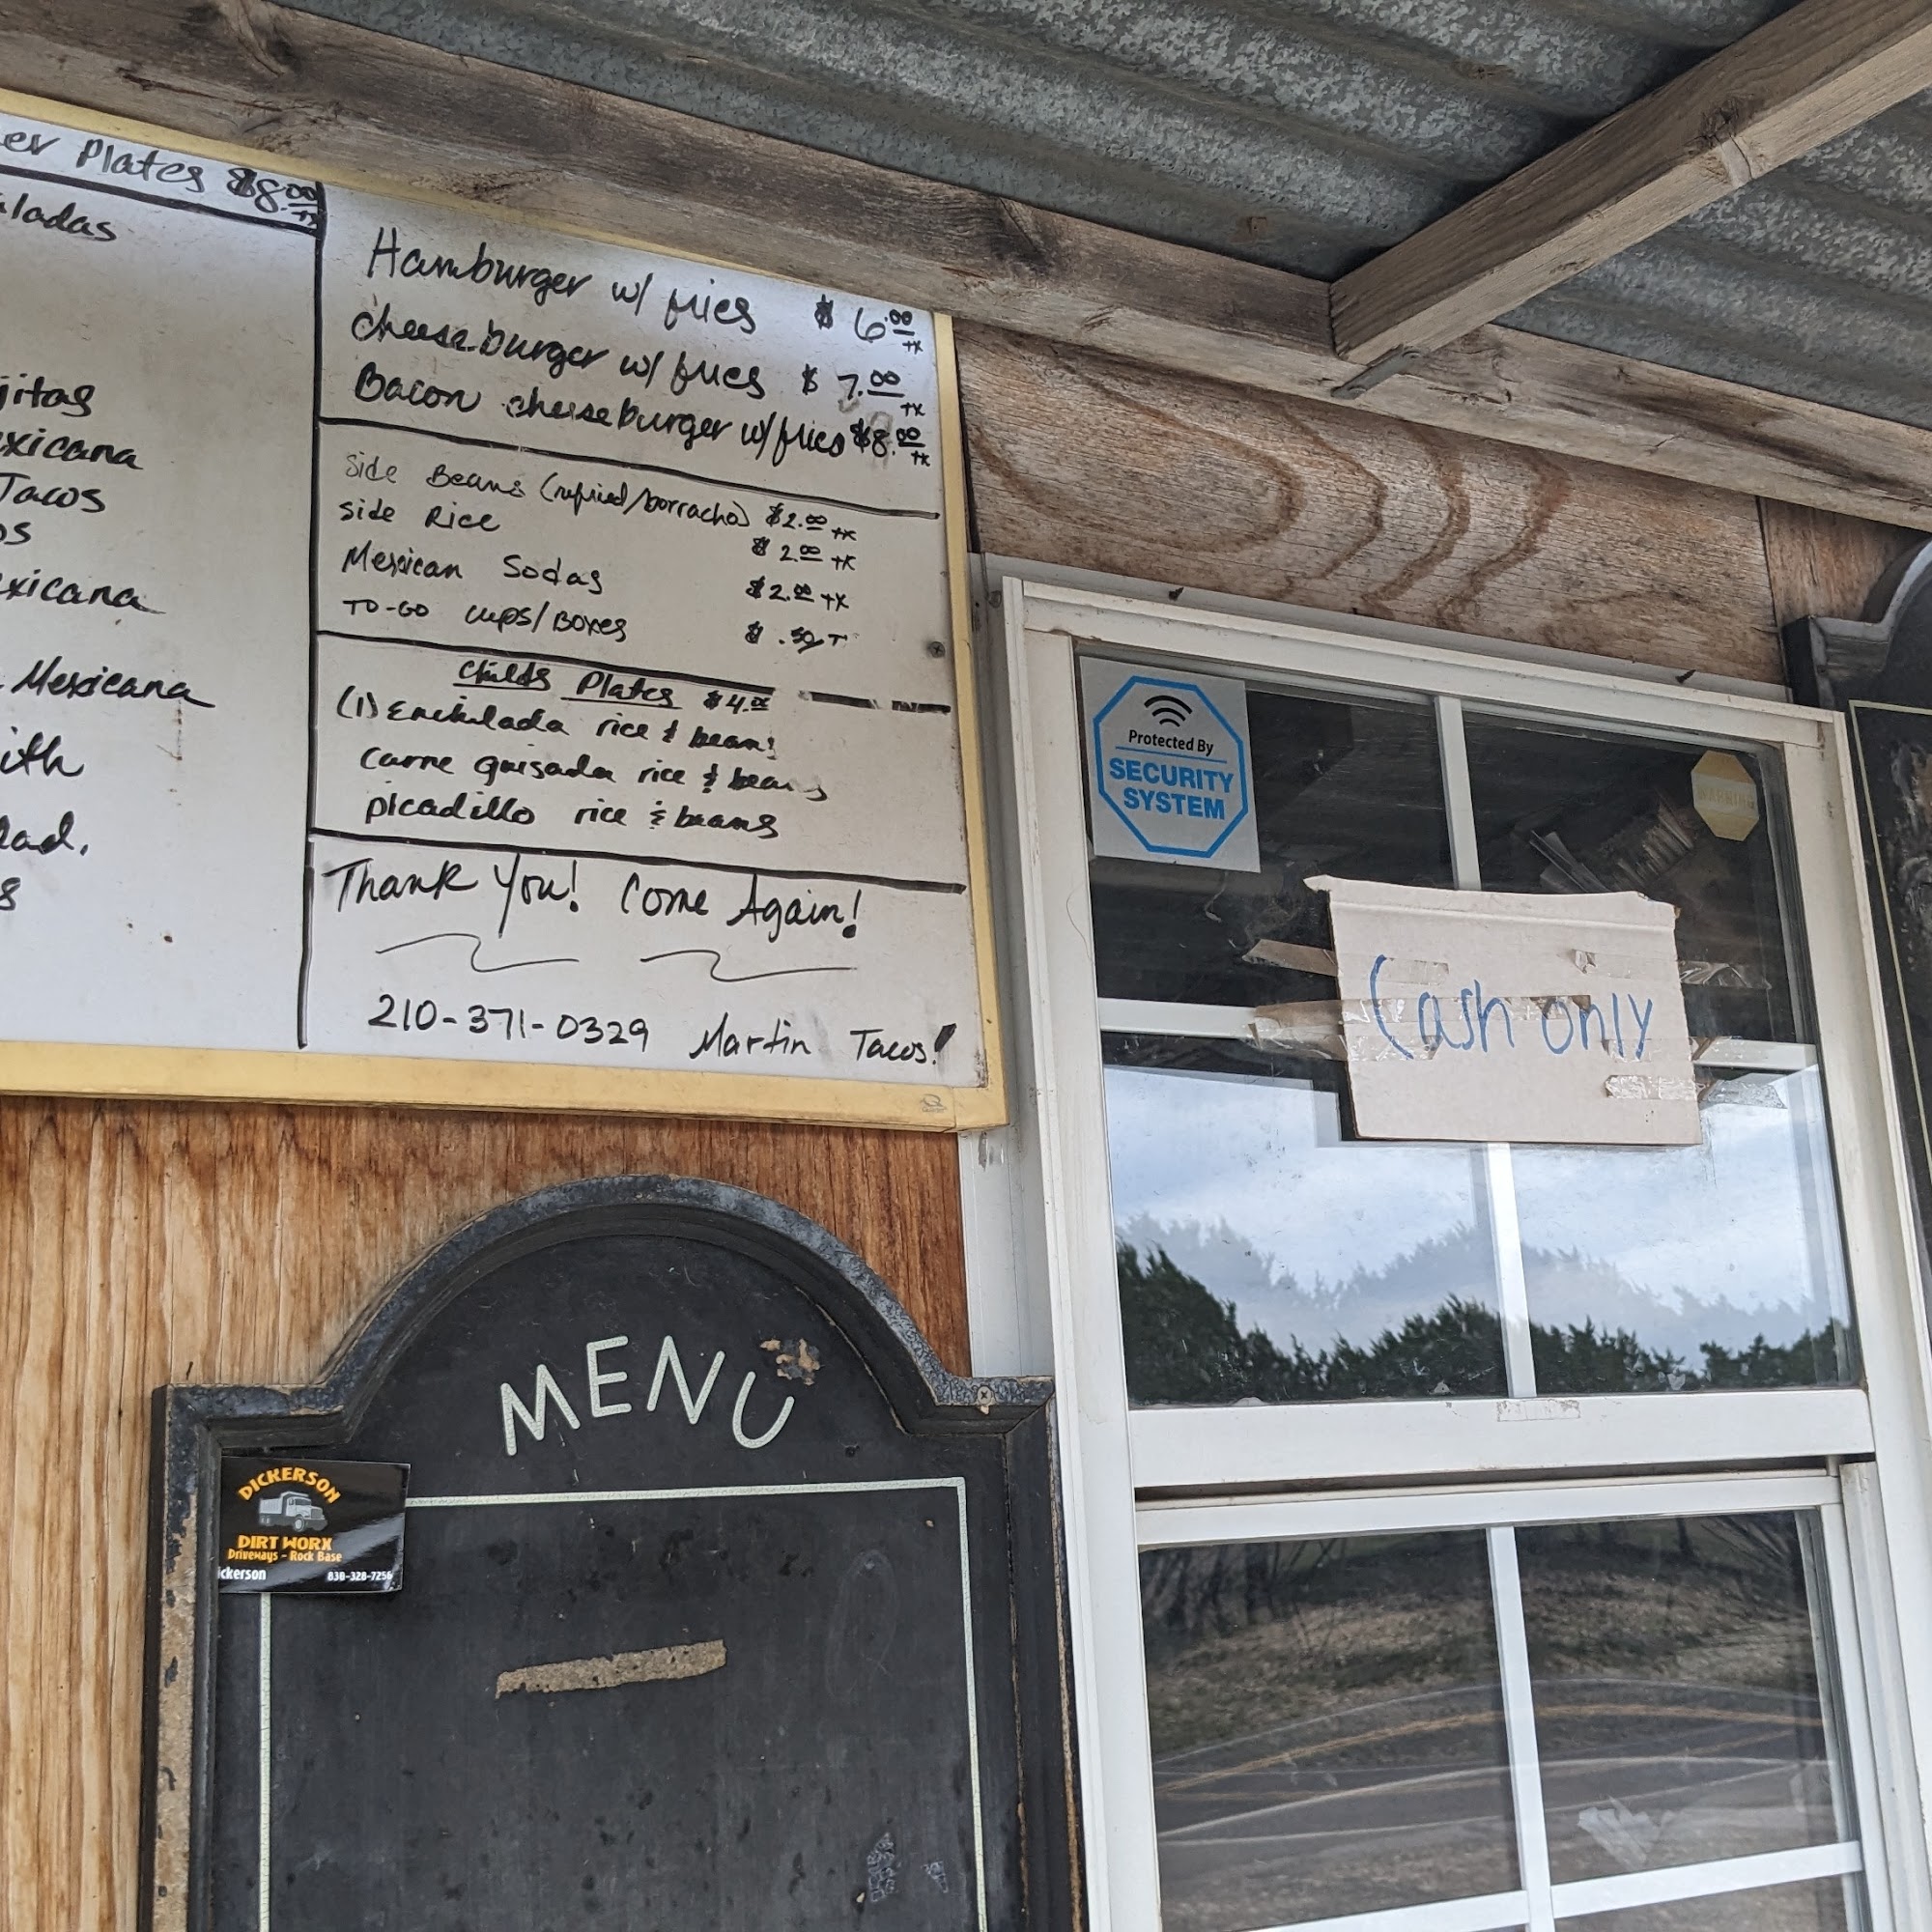 er Plates $8.00 +x
aladas
jitas
exicana
Tacos
os
exicana
Mexicana
ith
lad.
s
Hamburger w/ fries $6.00 +x
cheeseburger w/ fries $7.00 +x
Bacon cheeseburger w/ fries $8.00 +x
Side Beans (refried/borracho) $2.00 +x
side Rice $2.00 +x
Mexican Sodas $2.00 +x
TO-GO cups/Boxes $.50
Childs Plates $4.00
(1) Enchilada rice & beans
Carne guisada rice & beans
picadillo rice & beans
Thank You! Come Again!
210-371-0329 Martin Tacos!
Protected By
SECURITY
SYSTEM
WARNING
Cash only
MENU
DICKERSON
DIRT WORX
Driveways - Rock Base
ickerson 830-328-7256